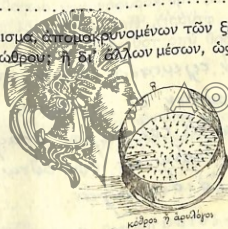 ισμα, απομακρυνομένων τῶν ξ
ώθρου; ἢ δι' ἄλλων μέσων, ὡς
ΑΘ
κόθρος ἢ ἀρυλόγος